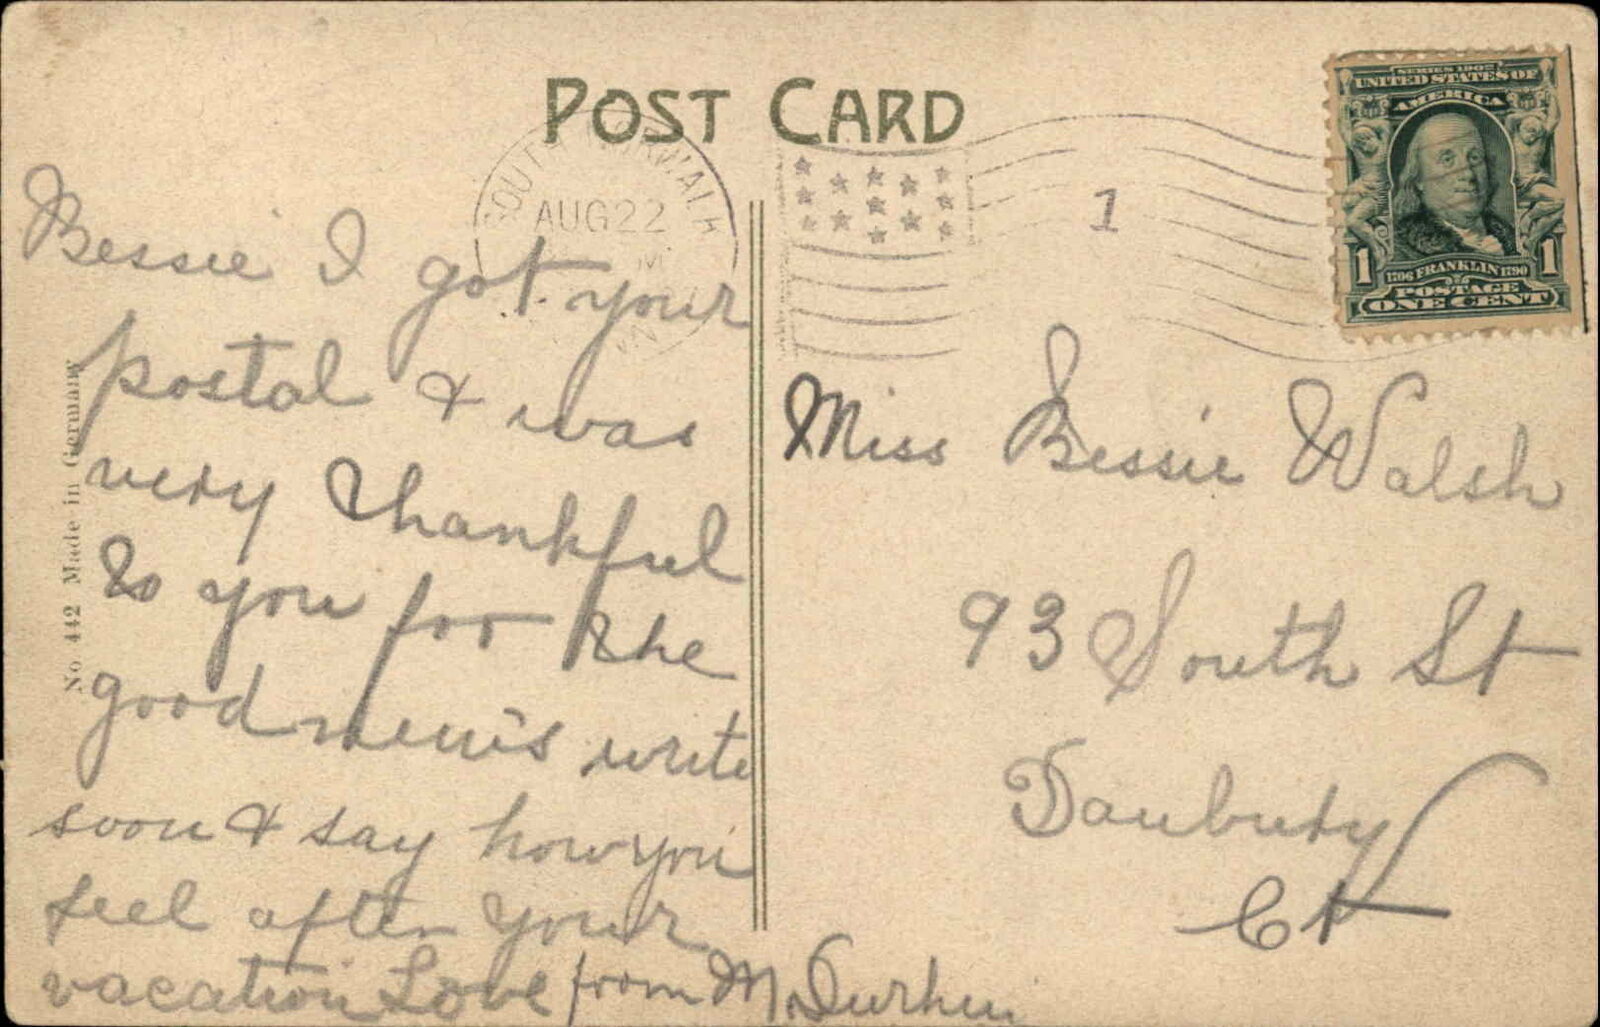 POST CARD
SOUTH NORWALK
AUG 22
1
SERIES 1902
UNITED STATES OF
AMERICA
1 1706 FRANKLIN 1790 1
POSTAGE
ONE CENT
No 442 Made in Germany
Bessie I got your
postal & was
very thankful
to you for the
good news write
soon & say how you
feel after your
vacation Love from M. Durkin
Miss Bessie Walsh
93 South St
Danbury
Ct